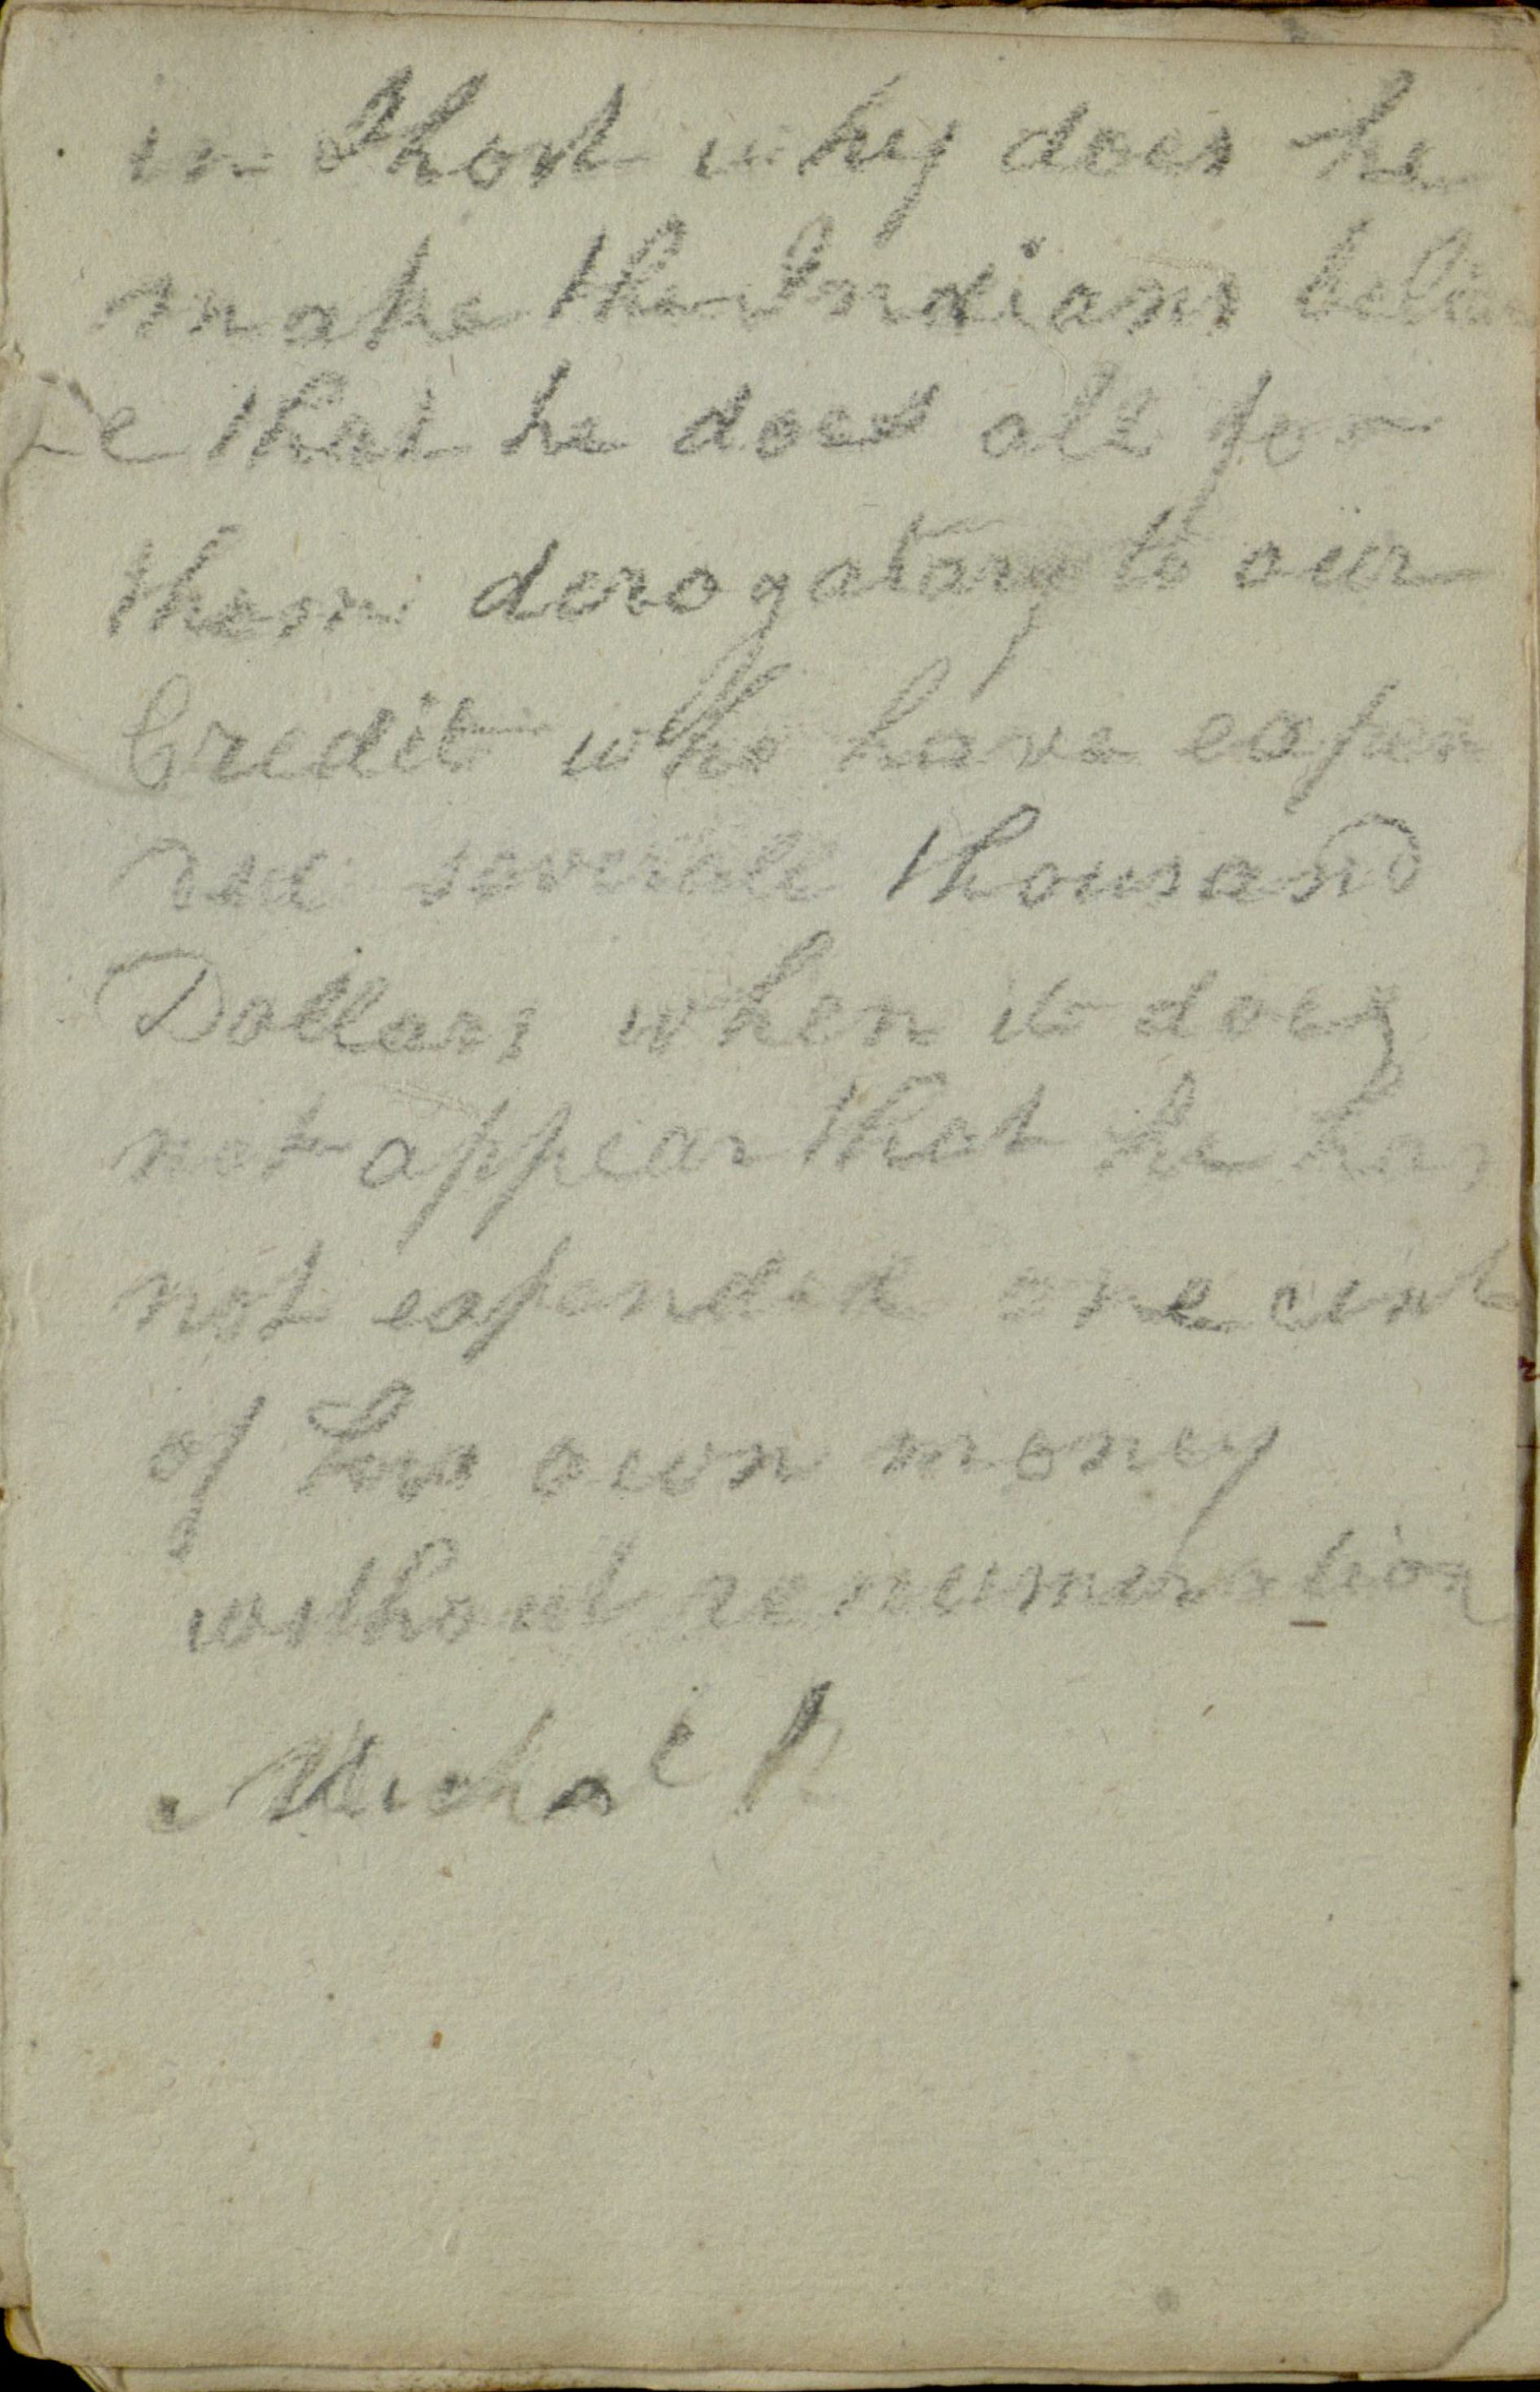 in Short why does he
make the Indians belie
ve that he does all for
them derogatary to our
Credit who have expen
ded severall thousand
Dollars when it does
not appear that he has
not expended one cent
of his own money
without renumeration
Michal